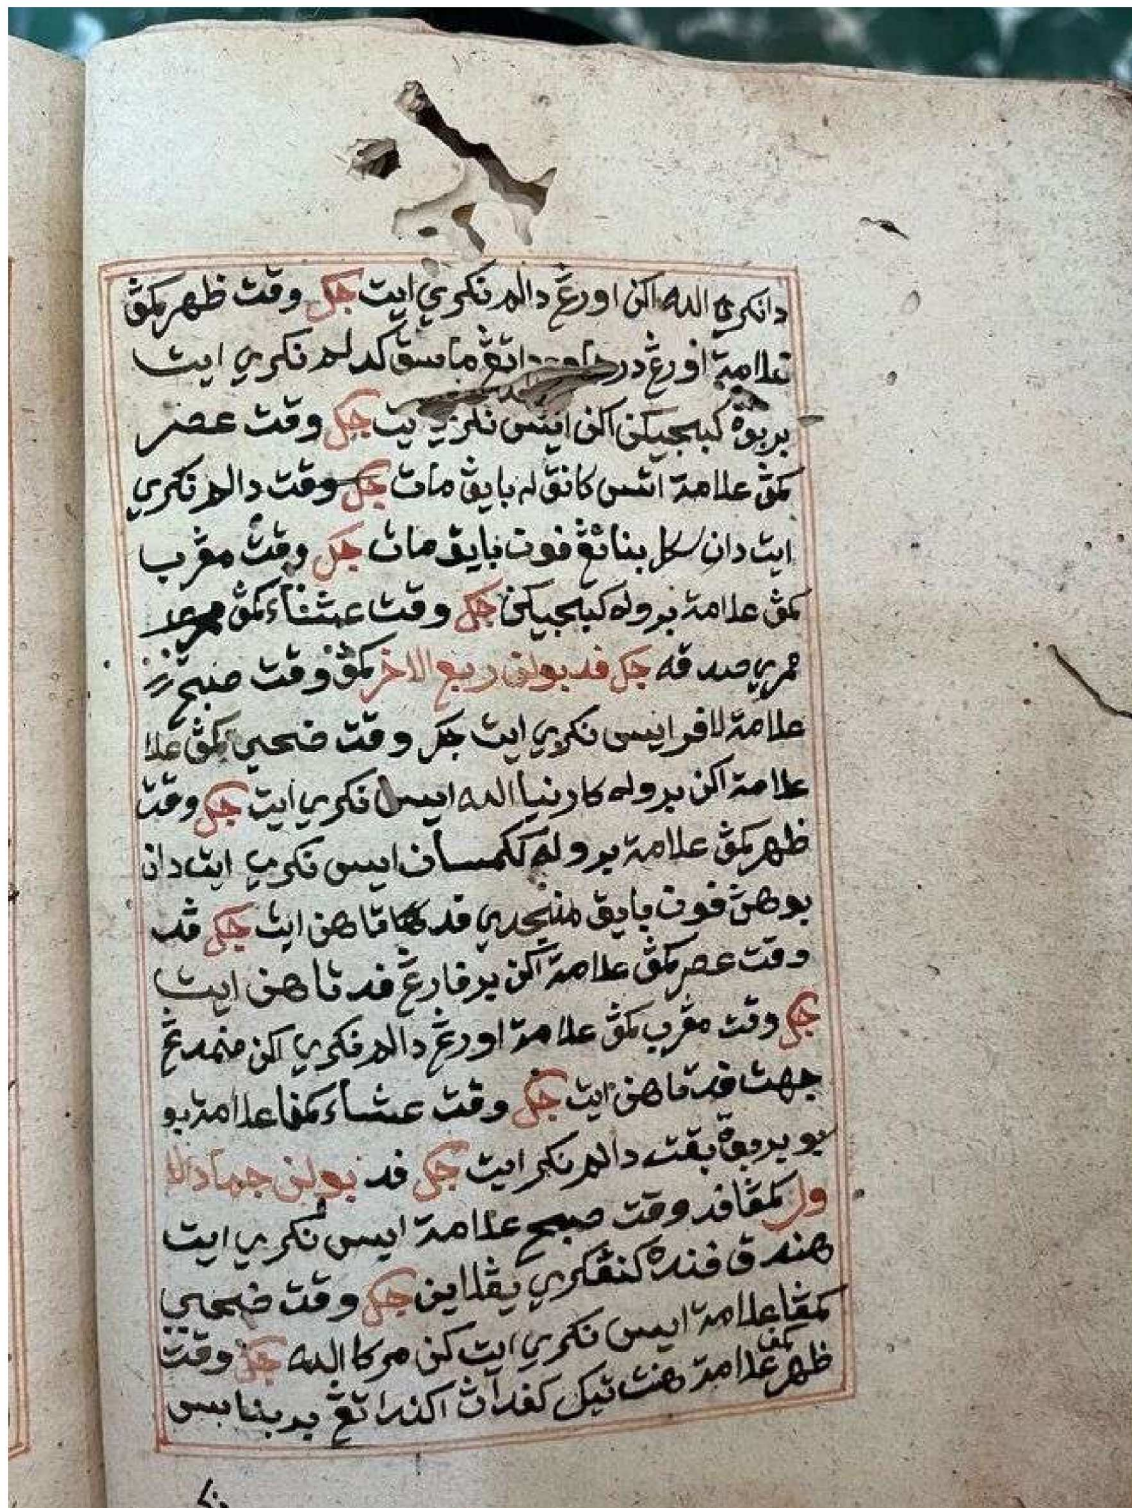 دانكرهي الله اكن اورڠ دالم نكري ايت جك وقت ظهر مكڤ
علامة اورڠ در داتڠ ماسق كدالم نكري ايت
بربوة كبجيكن اكن ايسي نكري ايت جك وقت عصر
مكڤ علامة اتس كانق٢ بايق مات جك وقت دالم نكري
ايت دان سكل بناتڠ فون بايق مات جك وقت مغرب
مكڤ علامة بروله كبجيكن جك وقت عشاء مكڤ
همري صدقه جك فد بولن ربيع الاخر مكڤ وقت صبح
علامة لافر ايسي نكري ايت جك وقت ضحى مكڤ علا
علامة اكن بروله كارنيا الله ايسي نكري ايت جك وقت
ظهر مكڤ علامة بروله ككمسان ايسي نكري ايت دان
بوهن فون بايق منجدي فد تاهن ايت جك فد
وقت عصر مكڤ علامة اكن برفارڠ فد تاهن ايت
جك وقت مغرب مكڤ علامة اورڠ دالم نكري اكن منمدڠ
جهت فد تاهن ايت جك وقت عشاء مكڤا علامة بو
بو بربوة بقت دالم نكر ايت جك فد بولن جمادالا
ول مكڤا فد وقت صبح علامة ايسي نكري ايت
هندق فنده كنڤكري يڠلاين جك وقت ضحى
مكڤا علامة ايسي نكري ايت كن مركا الله جك وقت
ظهر مكڤ علامة هنت تيكل كفدات اكندا تڠ بربناس